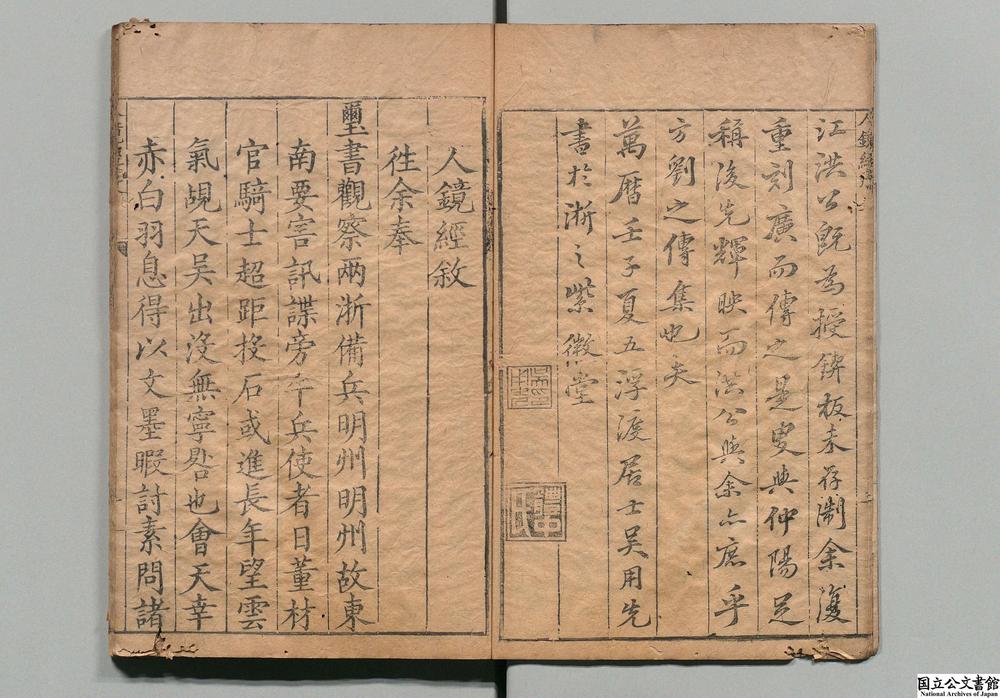 江洪公既為授鋅板未存淛余復
重刻廣而傳之是叟與仲陽足
稱後先輝映而洪公與余亦庶乎
方劉之傳集也夫
萬曆壬子夏五浮渡居士吳用先
書於浙之紫薇堂
人鏡經敘
徃余奉
璽書觀察兩浙備兵明州明州故東
南要害訊諜旁午兵使者日董材
官騎士超距投石或進長年望雲
氣覘天吳出沒無寧晷也會天幸
赤白羽息得以文墨暇討素問諸
国立公文書館
National Archives of Japan